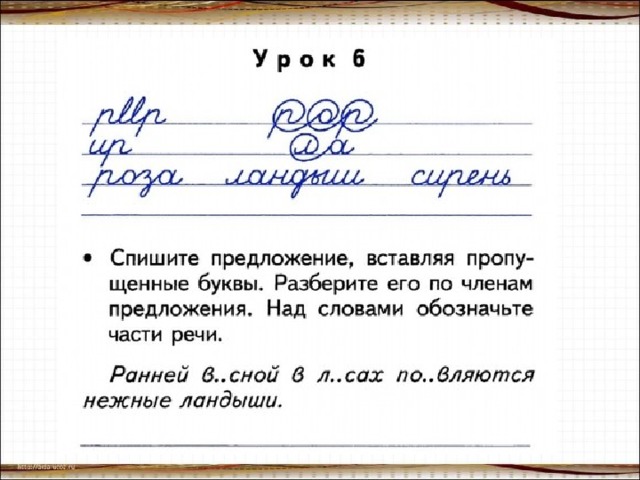 Урок 6
рllр рор
ир ла
роза ландыши сирень
• Спишите предложение, вставляя пропу-
щенные буквы. Разберите его по членам
предложения. Над словами обозначьте
части речи.
Ранней в..сной в л..сах по..вляются
нежные ландыши.